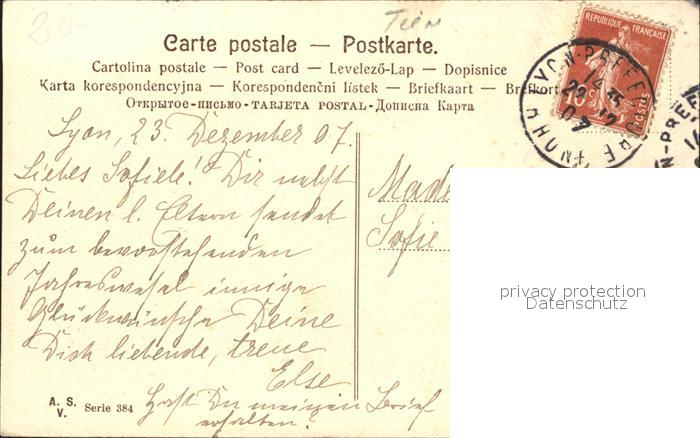 20.-
Tien
Carte postale — Postkarte.
Cartolina postale — Post card — Levelező-Lap — Dopisnice
Karta korespondencyjna — Korespondenční lístek — Briefkaart — Brefkort
Открытое-письмо-TARJETA POSTAL-Дописна Карта
REPUBLIQUE FRANÇAISE
10 c
POSTES
LYON-PREFECTURE
RHONE
Lyon, 23. Dezember 07.
Liebes Sofiele! Dir nebst
Deinen l. Eltern sendet
zum bevorstehenden
Jahreswexel innige
Glückwünsche Deine
Dich liebende, treue
Else
Hast Du meinen Brief
erhalten?
A. S.
V. Serie 384
Mad
Sofie
privacy protection
Datenschutz